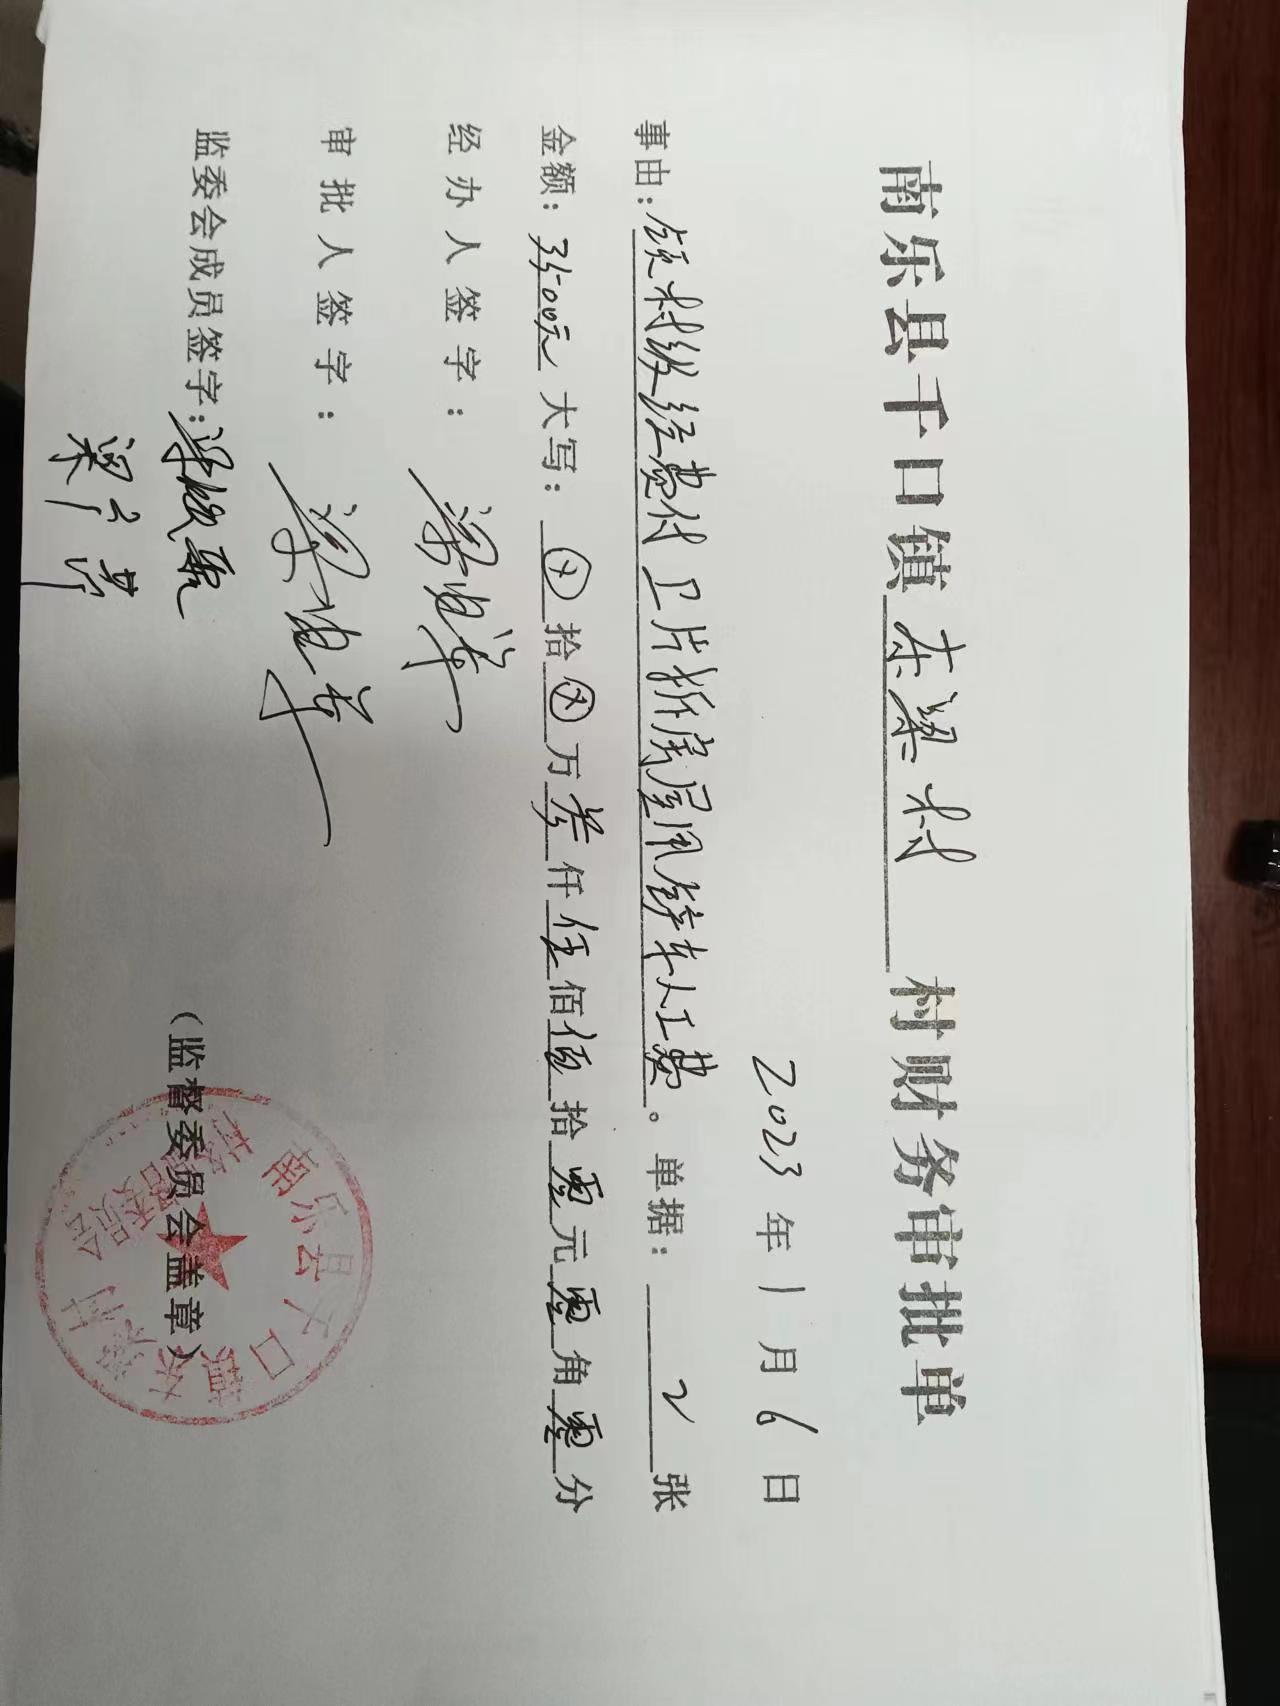 南乐县千口镇东梁村村财务审批单
2023年1月6日
事由：领村级经费付卫片拆房屋用铲车人工费。单据：2张
金额：3500元大写：⊗拾⊗万叁仟伍佰零拾零元零角零分
经办人签字：
审批人签字：
监委会成员签字：
（监督委员会盖章）
南乐县千口镇东梁村
委员会